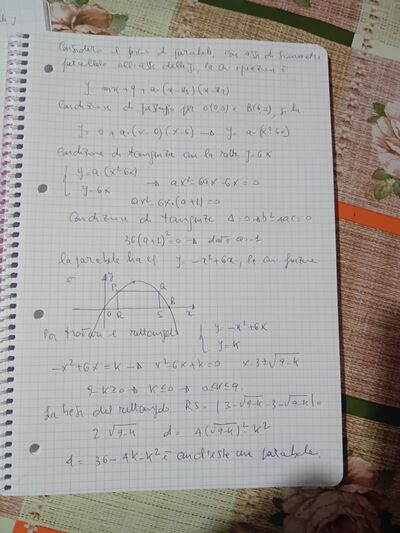 Considero il fascio di parabole, con asse di simmetria
parallelo all'asse delle y, la cui equazione è
y = mx+q+a·(x-x₁)(x-x₂)
Condizione di passaggio per O(0,0) e B(6,0), si ha
y = 0 + a·(x-0)(x-6) → y = a·(x²-6x)
Condizione di tangenza con la retta y=6x
{ y = a·(x²-6x)
y = 6x → ax²-6ax-6x=0
ax²-6x·(a+1)=0
Condizione di tangenza Δ=0 → b²-4ac=0
36(a+1)²=0 → a=-1
la parabola ha eq y=-x²+6x, la cui
y
P Q
O R S B x
Per trovare il rettangolo { y=-x²+6x
y=k
-x²+6x=k → x²-6x+k=0 x=3±√9-k
k≥0 → 0≤k≤9
La base del rettangolo RS = |3-√9-k-3-√9-k| =
2√9-k d = 4(√9-k)²-k²
d = 36-4k-k² è una parabola,